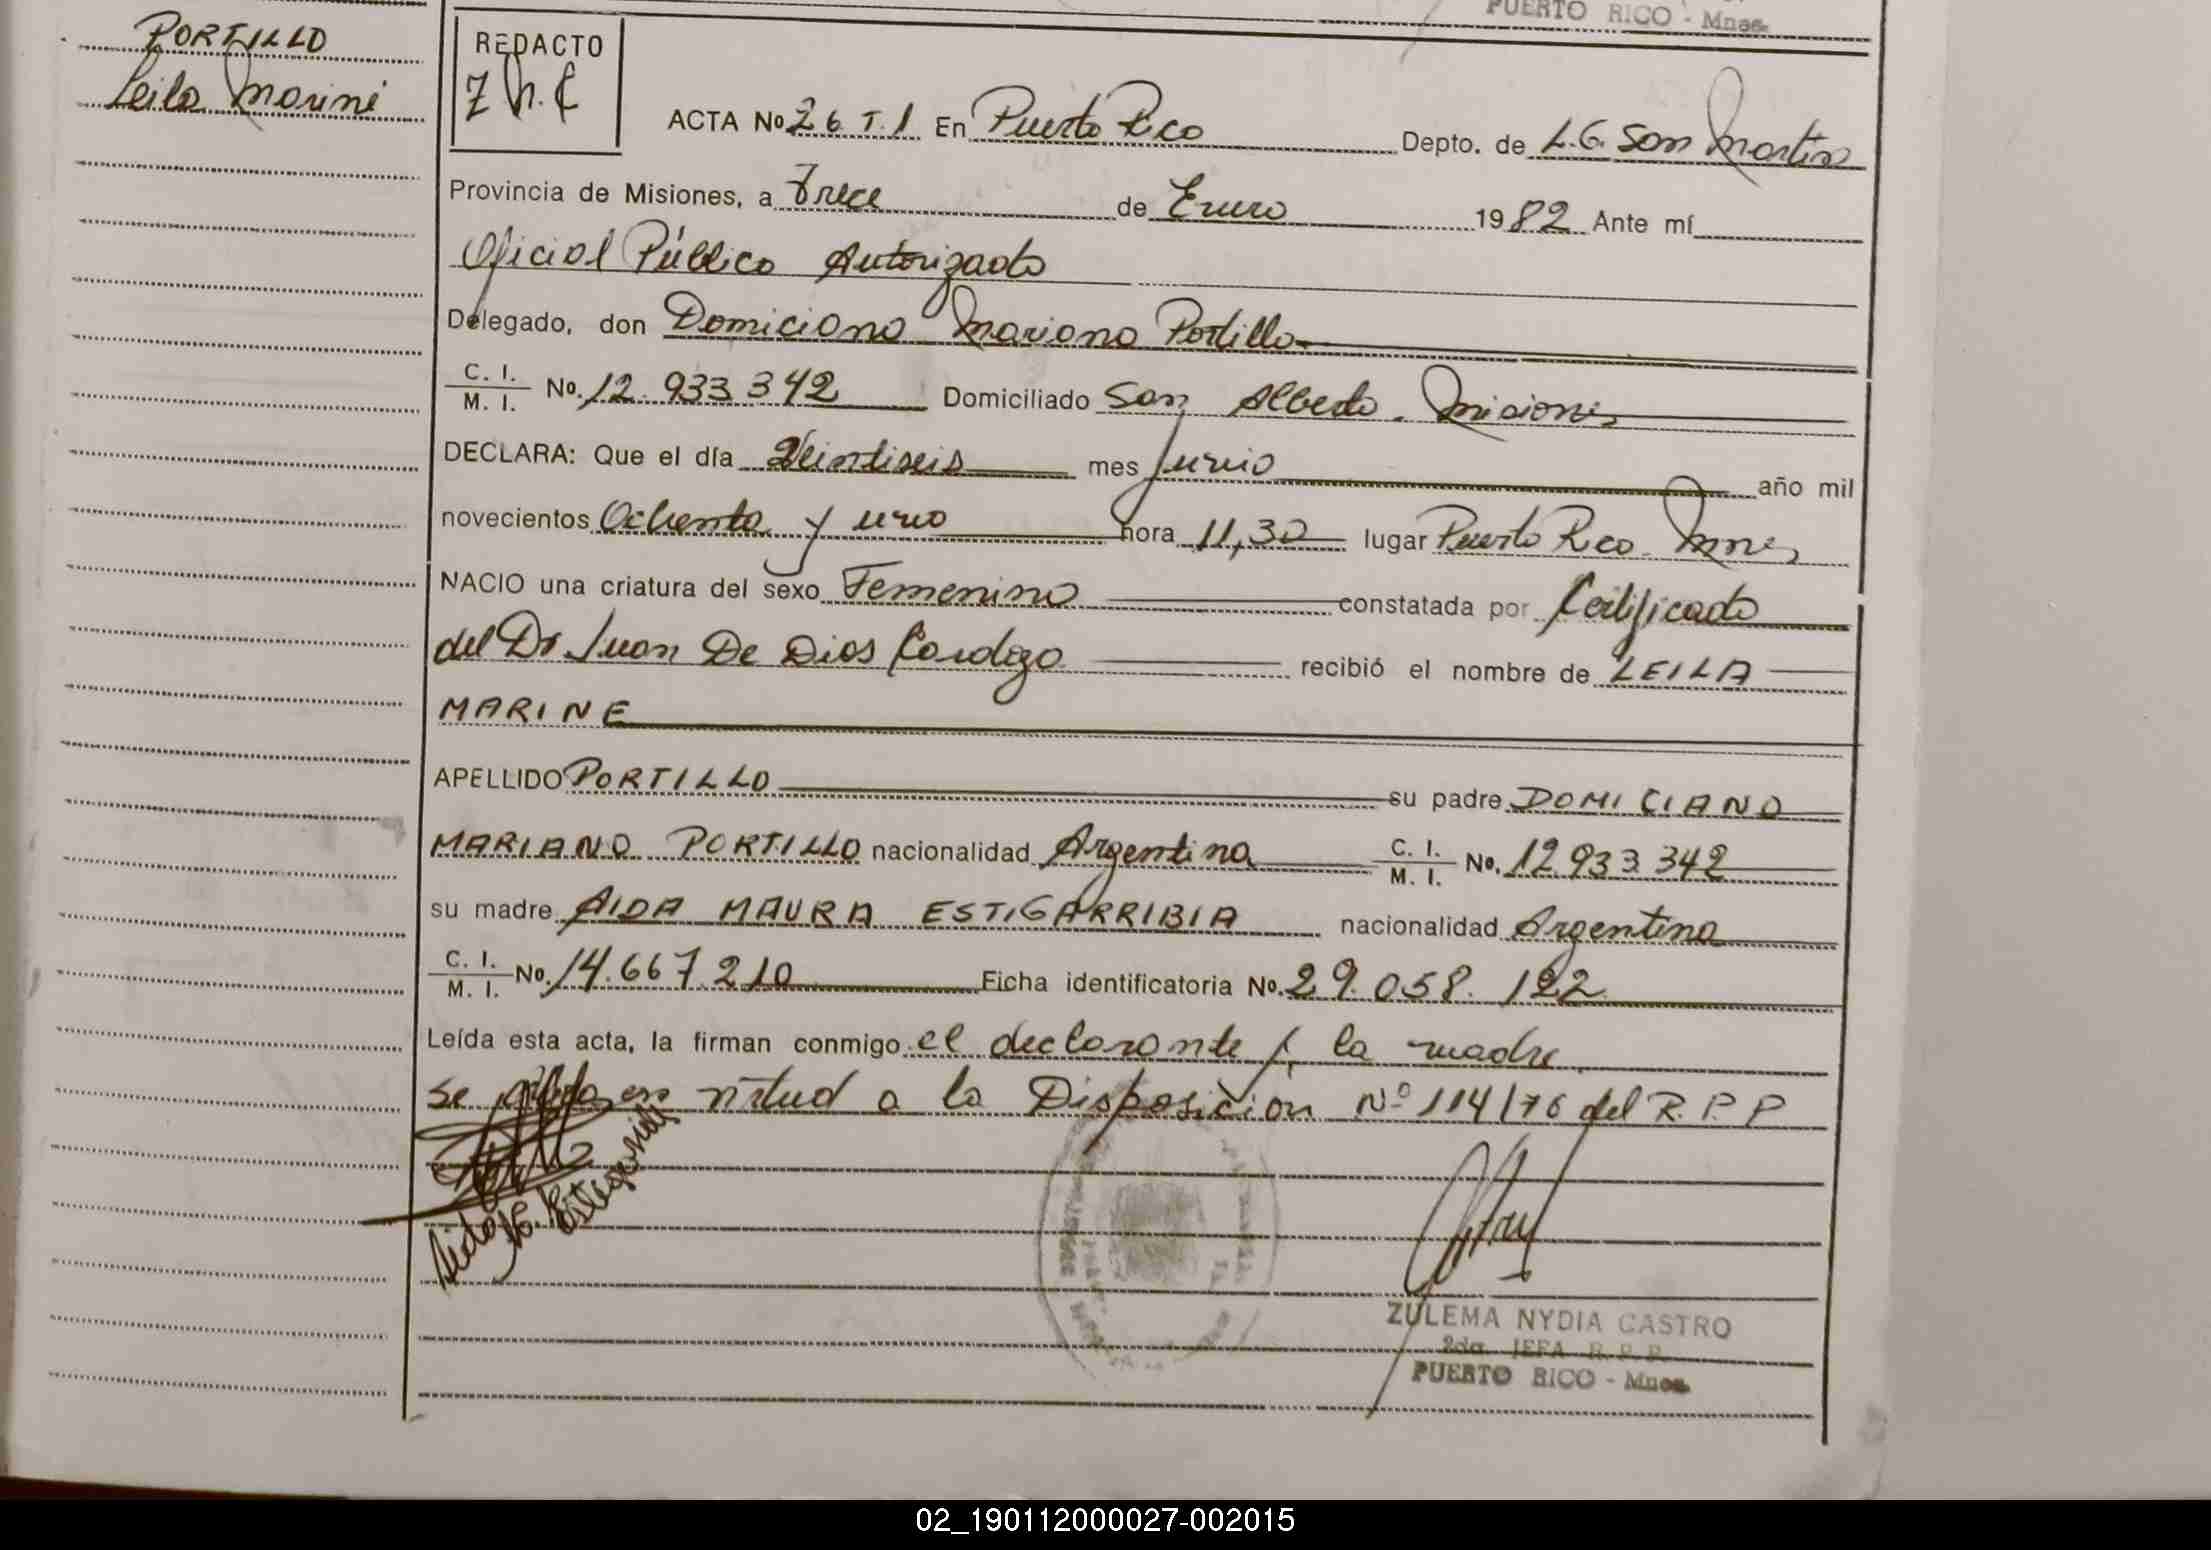 PUERTO RICO - Mnes.
PORTILLO
Leila Mariné
REDACTO
Z N. C
ACTA No. 26 T. 1 En Puerto Rico Depto. de L.G. San Martin
Provincia de Misiones, a Trece de Enero 1982 Ante mí
Oficial Público Autorizado
Delegado, don Domiciano Mariano Portillo
C. I. / M. I. No. 12.933.342 Domiciliado San Alberto. Misiones
DECLARA: Que el día Veintiseis mes Junio año mil
novecientos Ochenta y uno hora 11,30 lugar Puerto Rico. Mnes
NACIO una criatura del sexo Femenino constatada por Certificado
del Dr Juan De Dios Cardozo recibió el nombre de LEILA
MARINE
APELLIDO PORTILLO su padre DOMICIANO
MARIANO PORTILLO nacionalidad Argentina C. I. / M. I. No. 12.933.342
su madre AIDA MAURA ESTIGARRIBIA nacionalidad Argentina
C. I. / M. I. No. 14.667.210 Ficha identificatoria No. 29.058.122
Leída esta acta, la firman conmigo el declarante y la madre
Se en virtud a la Disposición Nº 114/76 del R.P.P
Aida M. Estigarribia
ZULEMA NYDIA CASTRO
2da. JEFA R. P. P.
PUERTO RICO - Mnes.
02_190112000027-002015